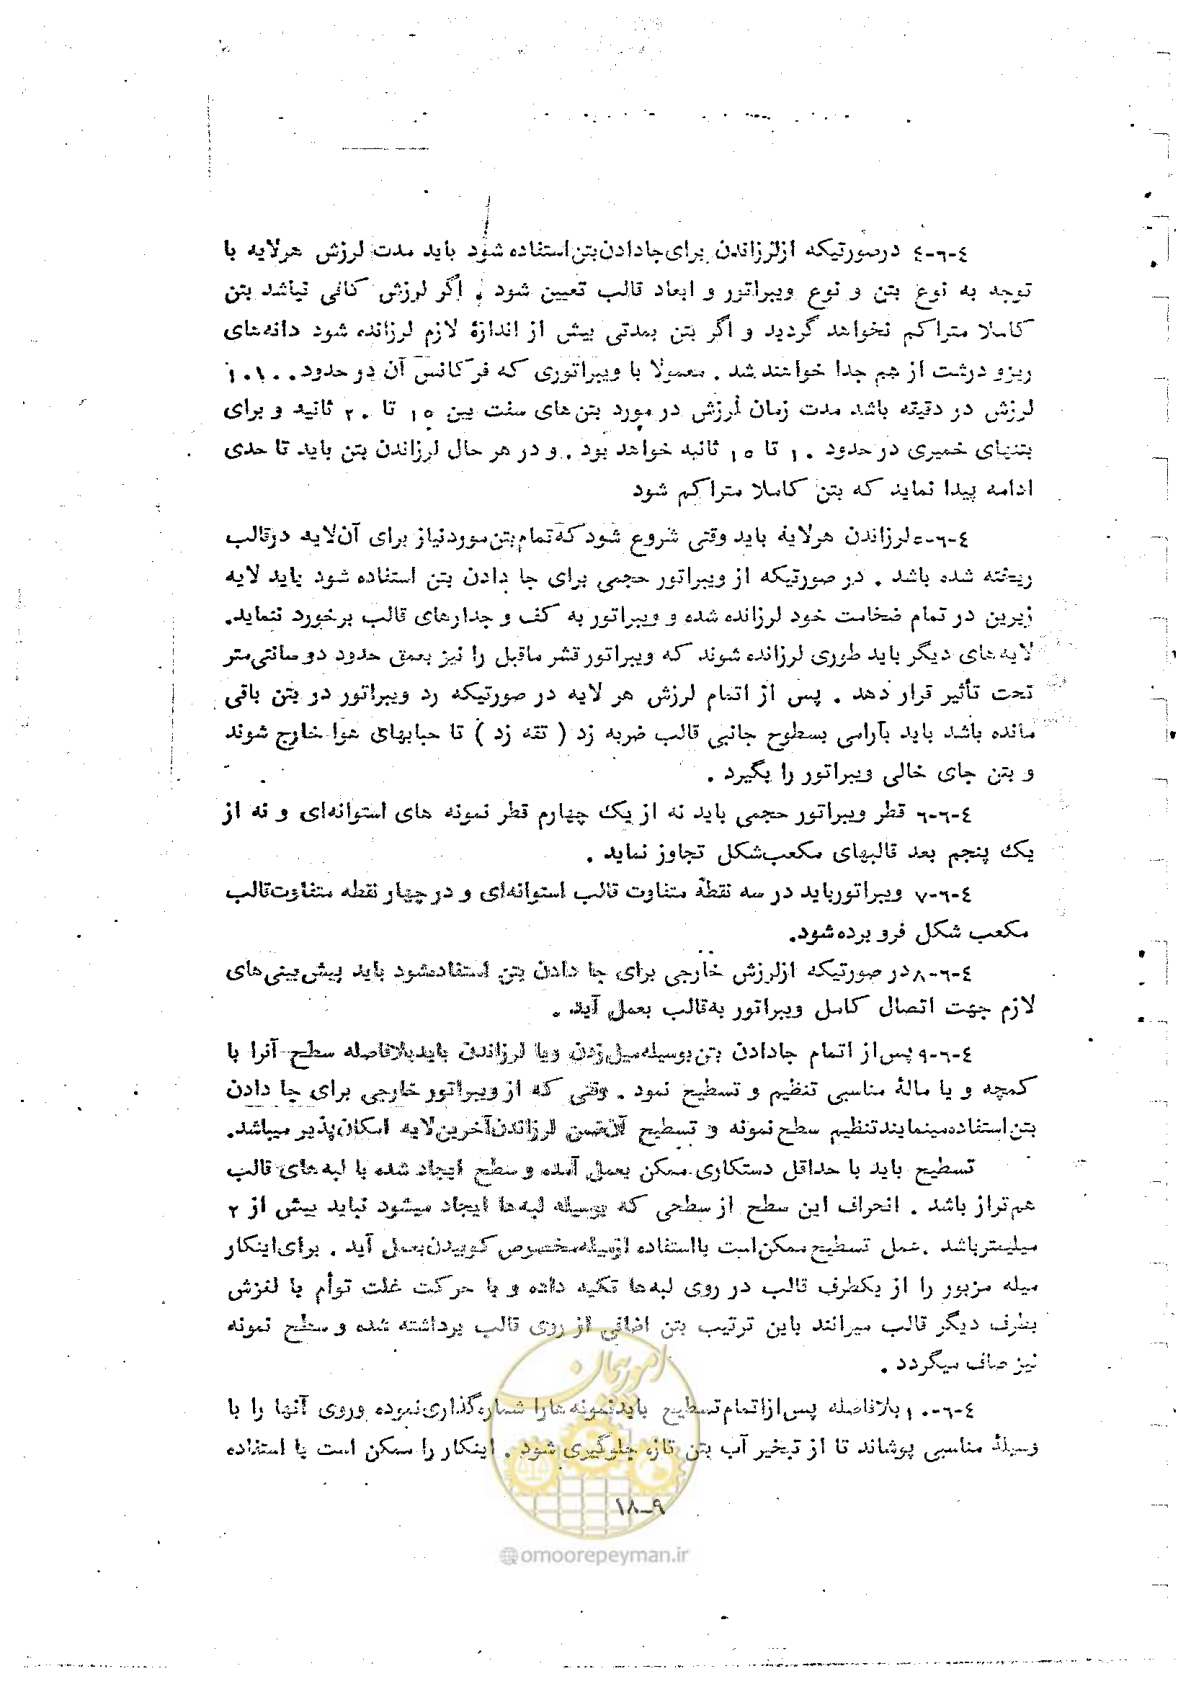 ۴-۶-۴ درصورتیکه ازلرزاندن برای‌جادادن‌بتن‌استفاده‌شود باید مدت لرزش هرلایه با
توجه به نوع بتن و نوع ویبراتور و ابعاد قالب تعیین شود . اگر لرزش کافی نباشد بتن
کاملا متراکم نخواهد گردید و اگر بتن بمدتی بیش از اندازهٔ لازم لرزانده شود دانه‌های
ریزو درشت از هم جدا خواهند شد . معمولا با ویبراتوری که فرکانس آن در حدود
لرزش در دقیقه باشد مدت زمان لرزش در مورد بتن‌های سفت بین ۱۵ تا ۲۰ ثانیه و برای
بتنهای خمیری در حدود ۱۰ تا ۱۵ ثانیه خواهد بود . و در هر حال لرزاندن بتن باید تا حدی
ادامه پیدا نماید که بتن کاملا متراکم شود
۴-۶-۵ لرزاندن هرلایه باید وقتی شروع شود که‌تمام‌بتن‌موردنیاز برای آن‌لایه درقالب
ریخته شده باشد . در صورتیکه از ویبراتور حجمی برای جا دادن بتن استفاده شود باید لایه
زیرین در تمام ضخامت خود لرزانده شده و ویبراتور به کف و جدارهای قالب برخورد ننماید.
لایه‌های دیگر باید طوری لرزانده شوند که ویبراتور قشر ماقبل را نیز بعمق حدود دو سانتی‌متر
تحت تأثیر قرار دهد . پس از اتمام لرزش هر لایه در صورتیکه رد ویبراتور در بتن باقی
مانده باشد باید بآرامی بسطوح جانبی قالب ضربه زد ( تقه زد ) تا حبابهای هوا خارج شوند
و بتن جای خالی ویبراتور را بگیرد .
۴-۶-۶ قطر ویبراتور حجمی باید نه از یک چهارم قطر نمونه های استوانه‌ای و نه از
یک پنجم بعد قالبهای مکعب‌شکل تجاوز نماید .
۴-۶-۷ ویبراتورباید در سه نقطهٔ متفاوت قالب استوانه‌ای و در چهار نقطه متفاوت‌قالب
مکعب شکل فرو برده‌شود.
۴-۶-۸ در صورتیکه ازلرزش خارجی برای جا دادن بتن استفاده‌شود باید پیش‌بینی‌های
لازم جهت اتصال کامل ویبراتور به‌قالب بعمل آید .
۴-۶-۹ پس‌از اتمام جادادن بتن‌بوسیله‌میل‌زدن ویا لرزاندن باید‌بلافاصله سطح آنرا با
کمچه و یا مالهٔ مناسبی تنظیم و تسطیح نمود . وقتی که از ویبراتور خارجی برای جا دادن
بتن‌استفاده‌مینمایندتنظیم سطح نمونه و تسطیح آن‌ضمن لرزاندن‌آخرین‌لایه امکان‌پذیر میباشد.
تسطیح باید با حداقل دستکاری ممکن بعمل آمده و سطح ایجاد شده با لبه‌های قالب
هم‌تراز باشد . انحراف این سطح از سطحی که بوسیله لبه‌ها ایجاد میشود نباید بیش از ۲
میلیمترباشد . عمل تسطیح ممکن‌است بااستفاده ازمیله‌مخصوص کوبیدن‌بعمل آید . برای‌اینکار
میله مزبور را از یکطرف قالب در روی لبه‌ها تکیه داده و با حرکت غلت توأم با لغزش
بطرف دیگر قالب میرانند باین ترتیب بتن اضافی از روی قالب برداشته شده و سطح نمونه
نیز صاف میگردد .
۴-۶-۱۰ بلافاصله پس‌ازاتمام‌تسطیح بایدنمونه‌هارا شماره‌گذاری‌نموده وروی آنها را با
وسیلهٔ مناسبی پوشاند تا از تبخیر آب بتن تازه جلوگیری شود . اینکار را ممکن است با استفاده
۱۸-۹
امور پیمان
@omoorepeyman.ir